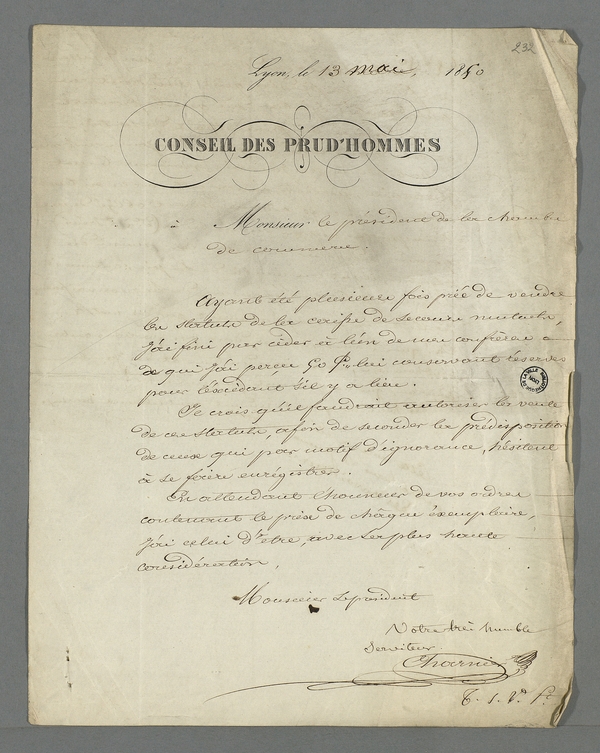 232
Lyon, le 13 mai, 1850
CONSEIL DES PRUD'HOMMES
à Monsieur le président de la chambre
de commerce.
Ayant été plusieurs fois prié de vendre
les statuts de la caisse de secours mutuels,
j'ai fini par céder à l'un de mes confrères
de qui j'ai perçu 50 lui conservant réserves
pour l'excédant s'il y a lieu.
Je crois qu'il faudrait autoriser la vente
de ces statuts, afin de seconder la prédisposition
de ceux qui par motif d'ignorance, hésitent
à se faire enrégistrer.
En attendant l'honneur de vos ordres
contenant le prix de châque éxemplaire,
j'ai celui d'être, avec la plus haute
considération,
Monsieur le président
Votre très humble
Serviteur
Charnier
T. S. V. P.